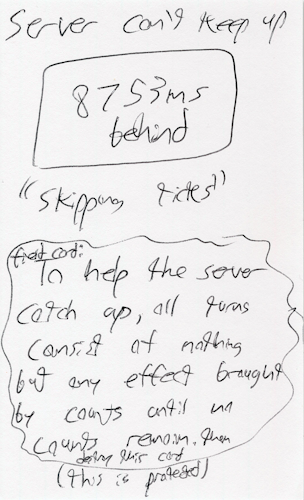 Server can't keep up
8753ms
behind
"Skipping ticks"
field card:
To help the server
catch up, all turns
consist of nothing
but any effect braught
by counts until no
counts remain. then
destroy this card
(this is proteted)